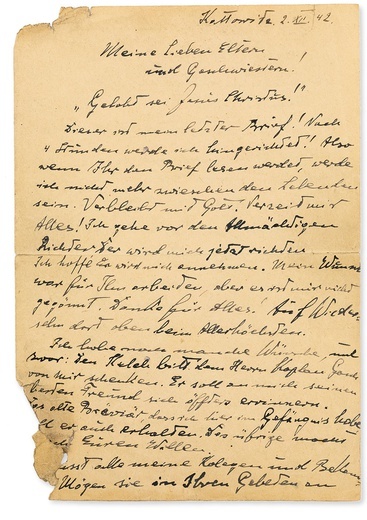 Kattowitz, 2. XII. 42.
Meine Lieben Eltern
und Geschwistern!
„Gelobt sei Jesus Christus!"
Dieser ist mein letzter Brief! Nach
4 Stunden werde ich hingerichtet! Also
wenn Ihr den Brief lesen werdet, werde
ich nicht mehr zwischen den Lebenden
sein. Verbleibt mit Gott. Verzeiht mir
Alles! Ich gehe vor den Allmächtigen
Richter Der wird mich jetzt richten
Ich hoffe Er wird mich annehmen. Mein Wunsch
war für Ihn arbeiten, aber es ist mir nicht
gegönnt. Danke für Alles! Auf Wieder-
sehn dort oben beim Allerhöchsten.
Ich habe noch manche Wünsche, und
zwar: den Kelch bitt dem Herrn Kaplan
von mir schenken. Er soll an mich seinen
Freund sich öfters erinnern.
alte Brevier dass ich hier im Gefängnis habe
er auch erhalten. Das übrige
Euren Willen.
alle meine Kolegen und
Mögen sie in Ihren Gebeden an